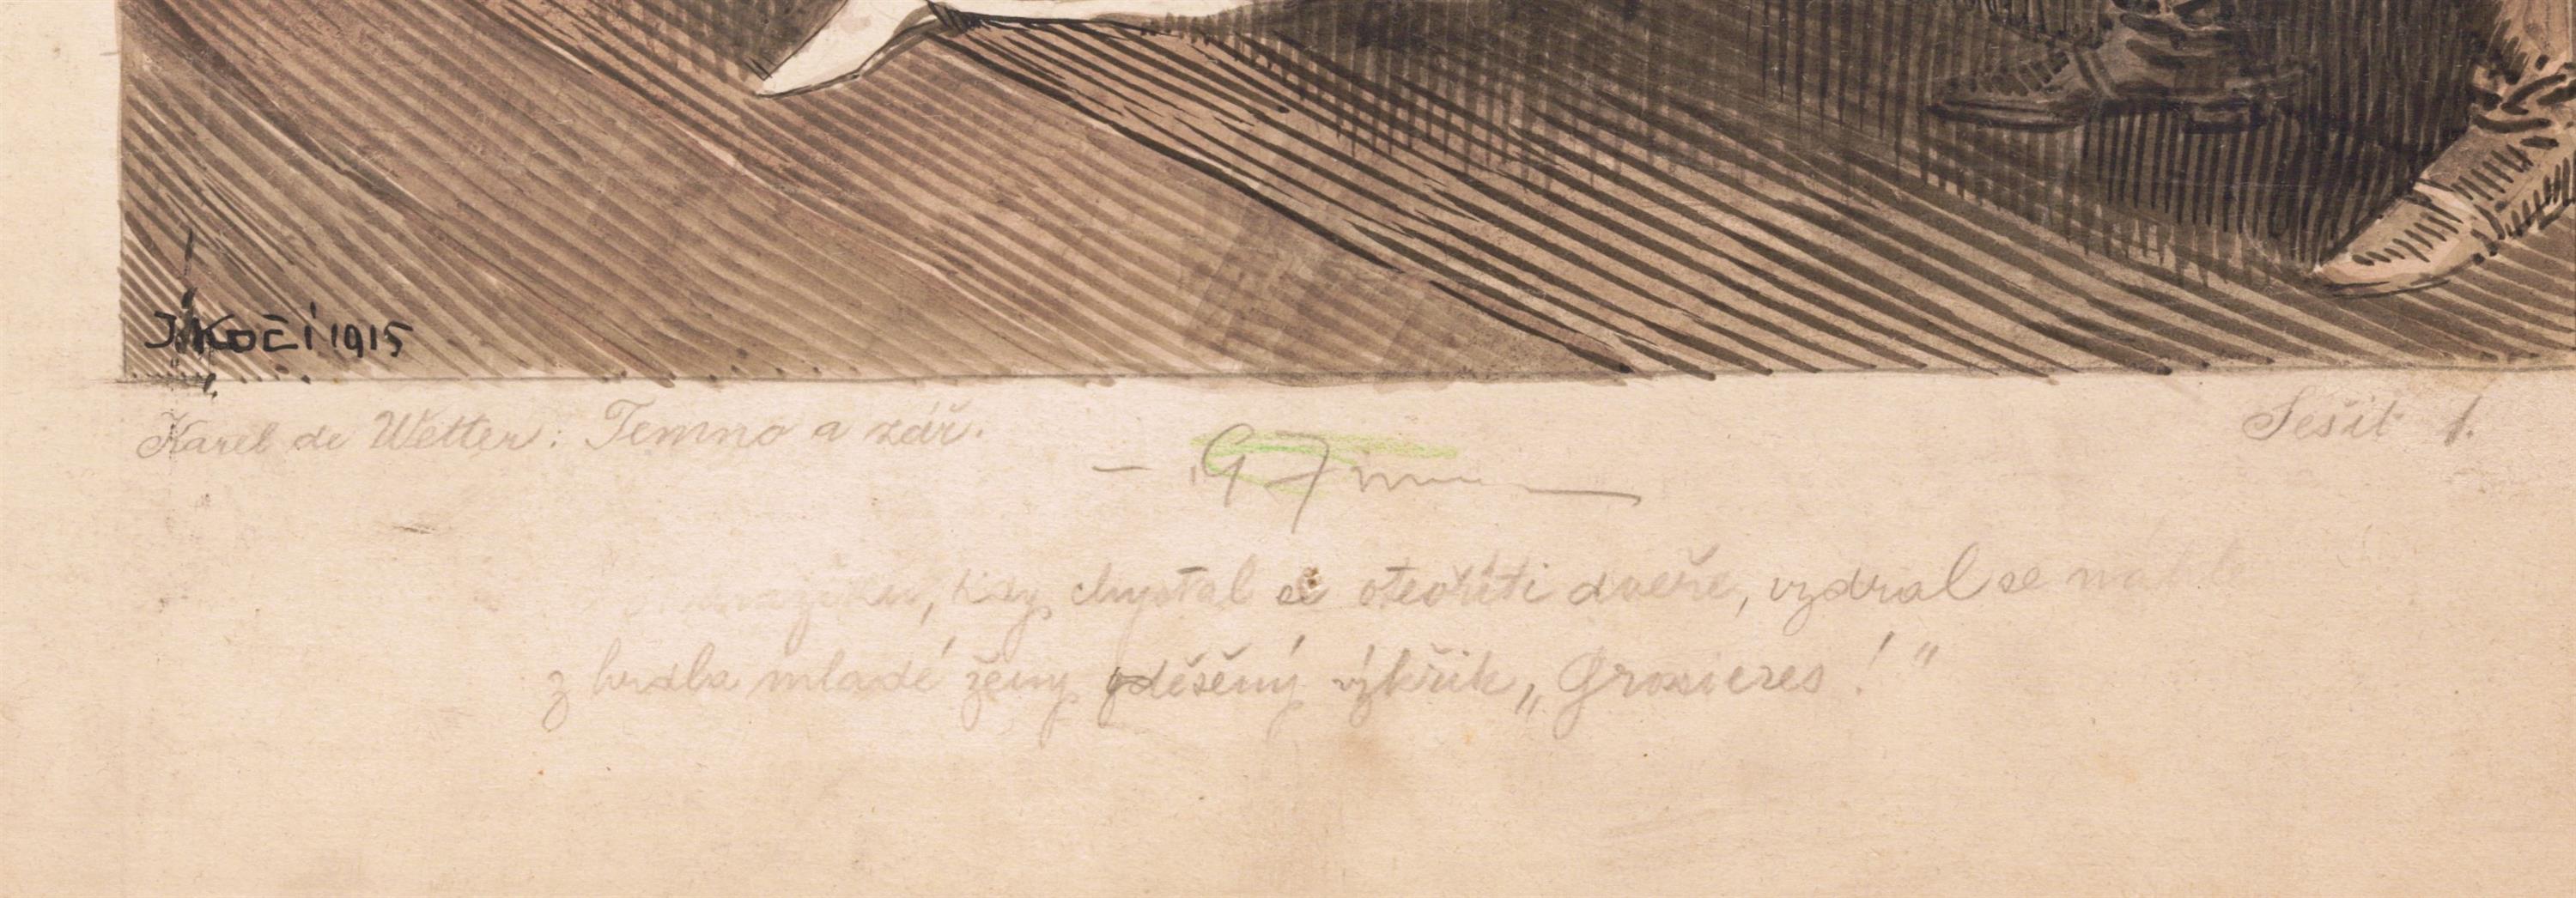 J. Kočí 1915
Karel de Wetter: Temno a zář.
Sešit 1.
kdy chystal se otevříti dveře, vzdral se
z hrdla mladé ženy zděšený výkřik „Grosieres!"